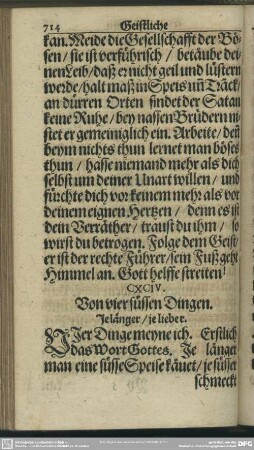 714 Geistliche
kan. Meide die Gesellschafft der Bö-
sen / sie ist verführisch / betäube dei-
nen Leib / daß er nicht geil und lüstern
werde / halt maß in Speis uñ Tranck /
an dürren Orten findet der Satan
keine Ruhe / bey nassen Brüdern ni-
stet er gemeiniglich ein. Arbeite / deñ
beym nichts thun lernet man böses
thun / hasse niemand mehr als dich
selbst um deiner Unart willen / und
fürchte dich vor keinem mehr als vor
deinem eignen Hertzen / denn es ist
dein Verräther / traust du ihm / so
wirst du betrogen. Folge dem Geist /
er ist der rechte Führer / sein Fuß geht
Himmel an. Gott helffe streiten!
CXCIV.
Von vier süssen Dingen.
Je länger / je lieber.
VJer Dinge meyne ich. Erstlich
das Wort Gottes. Je länger
man eine süsse Speise käuet / je süsser
schmeckt